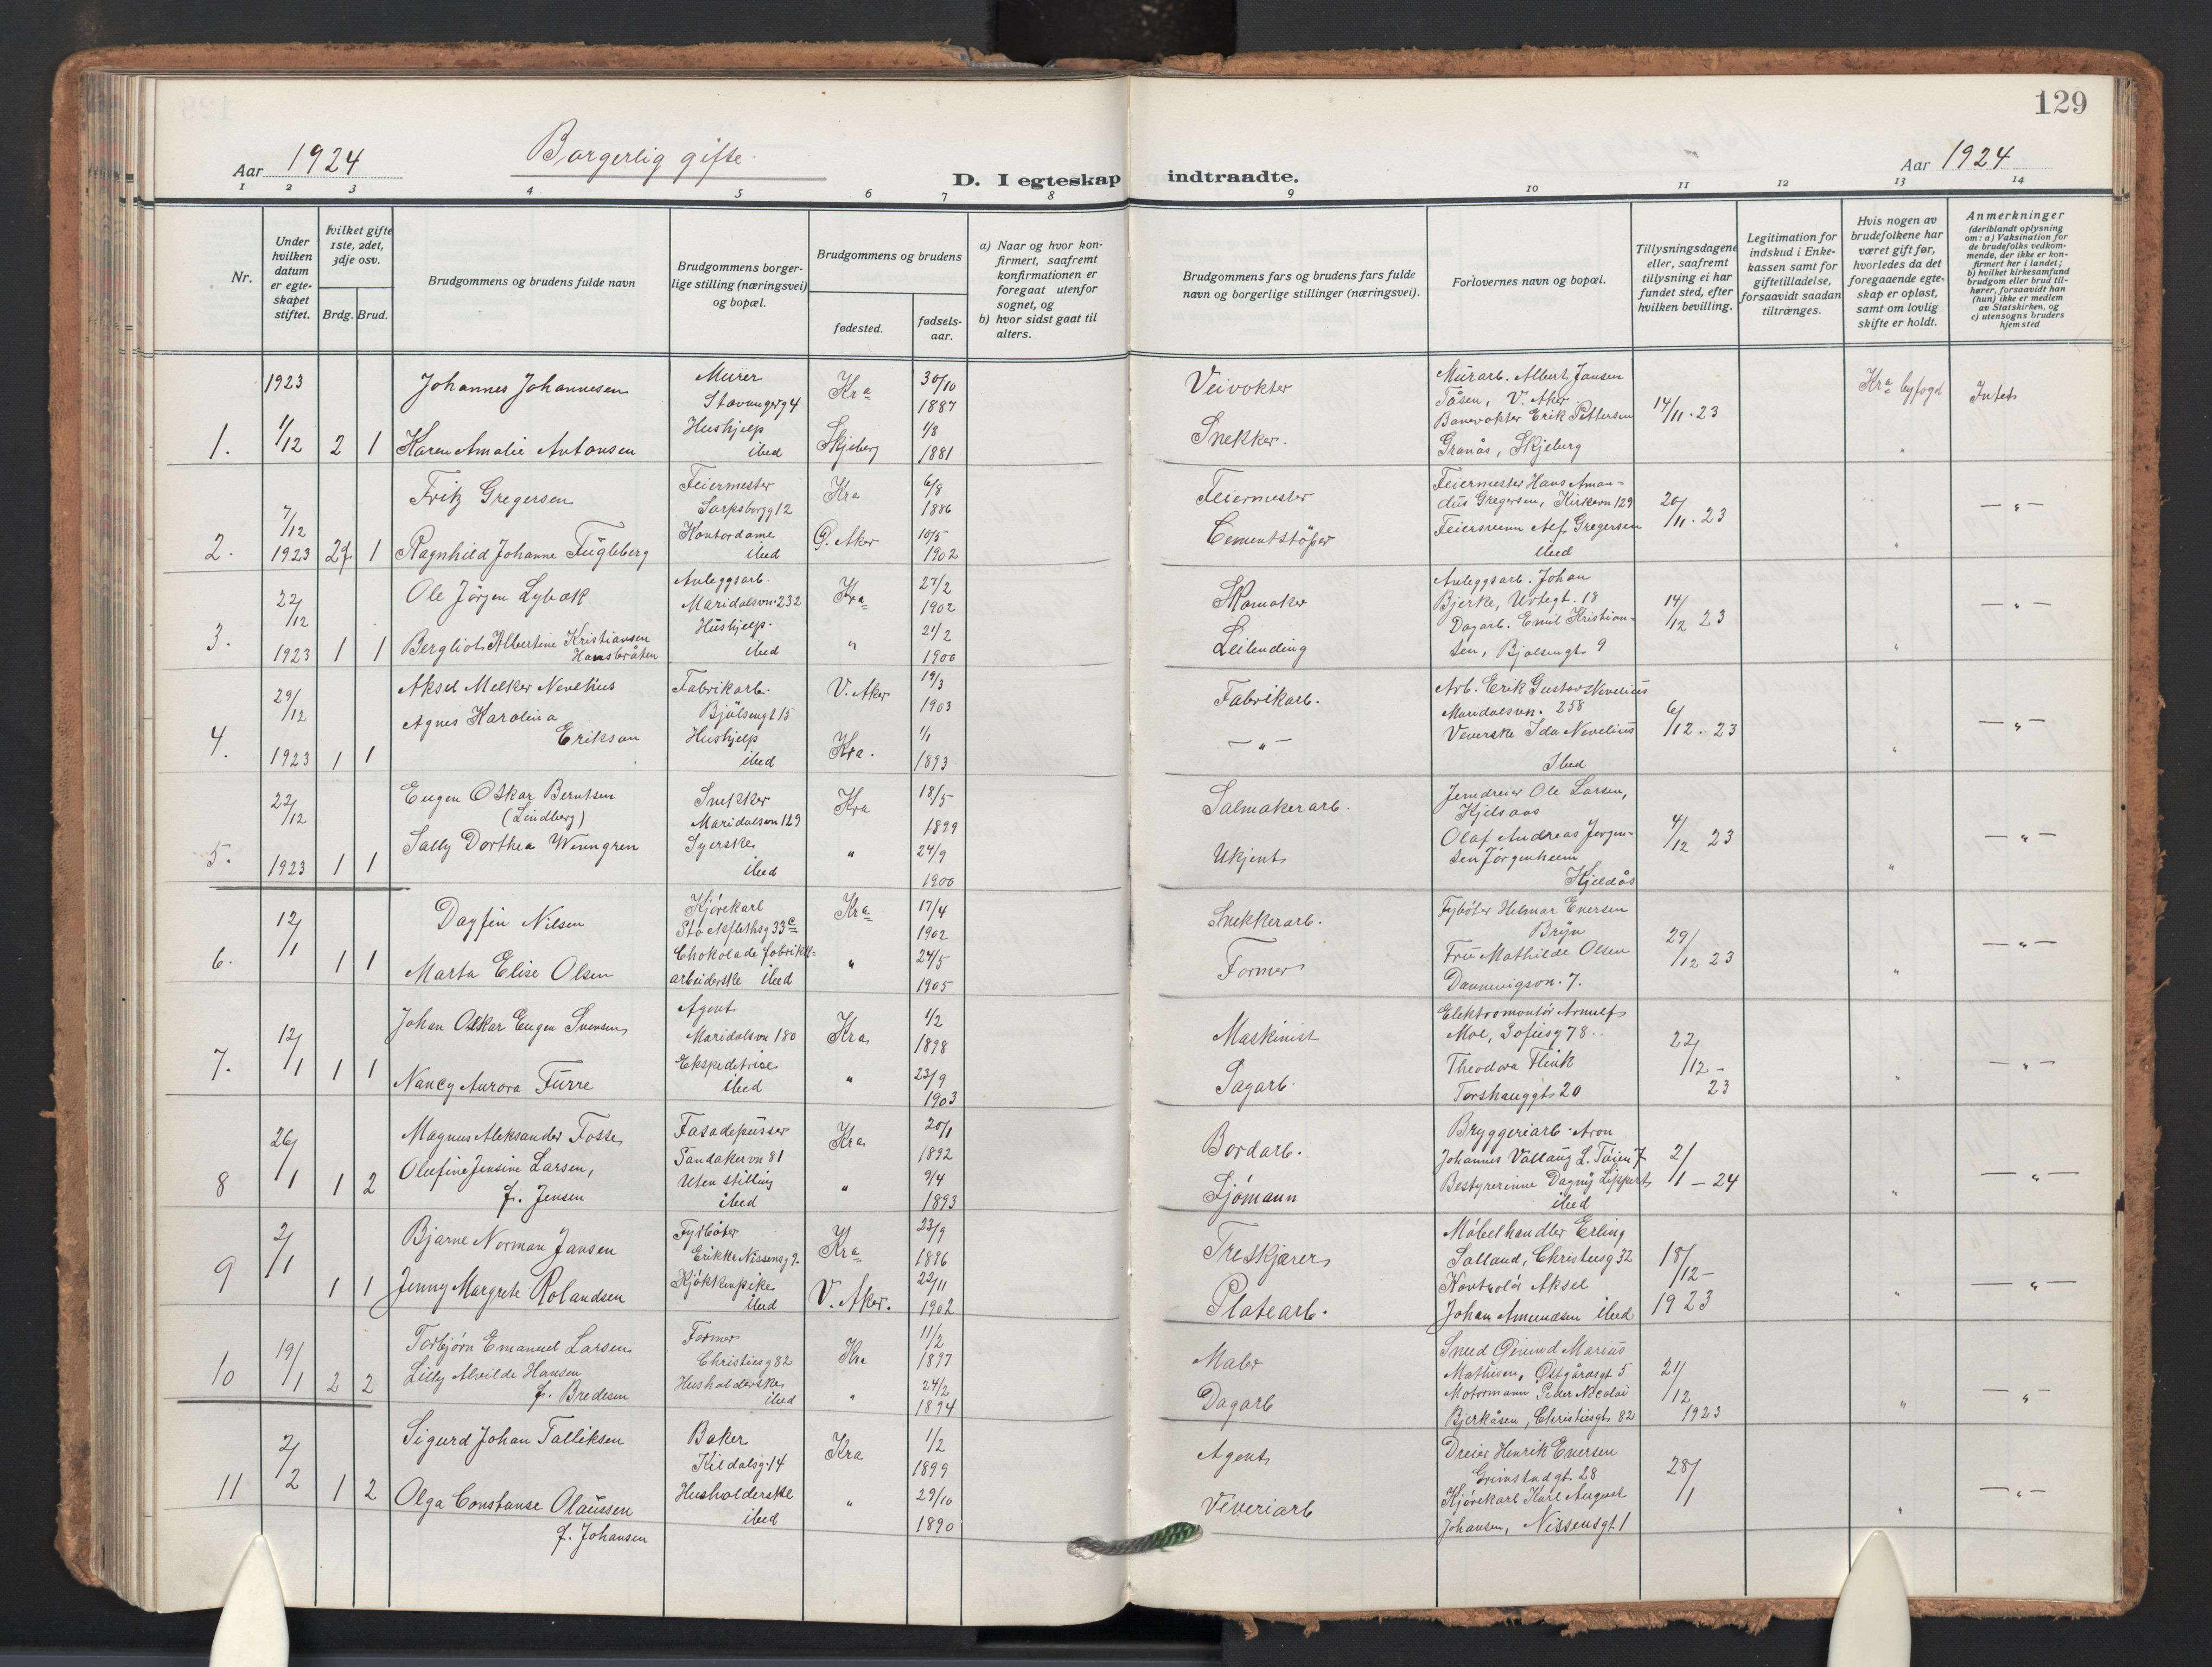 129
Aar 1924
Borgerlig gifte.
D. I egteskap indtraadte.
Aar 1924
1 2 3 4 5 6 7 8 9 10 11 12 13 14
Nr.
Under hvilken datum er egte-skapet stiftet.
hvilket gifte 1ste, 2det, 3dje osv.
Brdg. Brud.
Brudgommens og brudens fulde navn
Brudgommens borger-lige stilling (næringsvei) og bopæl.
Brudgommens og brudens
fødested.
fødsels-aar.
a) Naar og hvor kon-firmert, saafremt konfirmationen er foregaat utenfor sognet, og
b) hvor sidst gaat til alters.
Brudgommens fars og brudens fars fulde navn og borgerlige stillinger (næringsvei).
Forlovernes navn og bopæl.
Tillysningsdagene eller, saafremt tillysning ei har fundet sted, efter hvilken bevilling.
Legitimation for indskud i Enke-kassen samt for giftetilladelse, forsaavidt saadan tiltrænges.
Hvis nogen av brudefolkene har været gift før, hvorledes da det foregaaende egte-skap er opløst, samt om lovlig skifte er holdt.
Anmerkninger (deriblandt oplysning om: a) Vaksination for de brudefolks vedkom-mende, der ikke er kon-firmert her i landet; b) hvilket kirkesamfund brudgom eller brud til-hører, forsaavidt han (hun) ikke er medlem av Statskirken, og c) utensogns bruders hjemsted
1. 1923 1/12 2 1
Johannes Johannesen
Karen Amalie Antonsen
Murer
Stavangerg 4
Hushjelp
ibed
Kra 30/10 1887
Skjeberg 1/8 1881
Veivokter
Snekker.
Murarb. Albert Jansen
Tåsen, V. Aker
Banevokter Erik Pettersen
Granås, Skjeberg
14/11. 23
Kra byfogd
Intet
2. 7/12 1923 2f 1
Fritz Gregersen
Ragnhild Johanne Fugleberg
Feiermester
Sarpsborgg 12
Kontordame
ibed
Kra 6/8 1886
Ø. Aker 10/5 1902
Feiermester
Cementstøper
Feiermester Hans Aman-
dus Gregersen, Kirkevn 129
Feiersvenn Alf Gregersen
ibed
20/11. 23
" — " —
3. 22/12 1923 1 1
Ole Jörgen Lybæk
Bergliot Albertine Kristiansen
Hansbråten
Anleggsarb.
Maridalsvn. 232
Hushjelp.
ibed
Kra 27/2 1902
" 21/2 1900
Skomaker
Leilending
Anleggsarb. Johan
Bjerke, Urtegt. 18
Dagarb. Emil Kristian-
sen, Bjølsengt 9
14/12 23
" — " —
4. 29/12 1923 1 1
Aksel Melker Nevelius
Agnes Karolina
Erikson
Fabrikarb.
Bjølsengt 15
Hushjelp
ibed
V. Aker 19/3 1903
Kra. 1/1 1893
Fabrikarb.
— " —
Arb. Erik Gustav Nevelius
Maridalsvn. 258
Veverske Ida Nevelius
Ibed
6/12. 23
" — " —
5. 22/12 1923 1 1
Eugen Oskar Berntsen
(Lindberg)
Sally Dorthea Wenngren
Snekker
Maridalsvn 129
Syerske
ibed
Kra 18/5 1899
" 24/9 1900
Salmakerarb.
Ukjent
Jerndreier Ole Larsen,
Kjelsaas
Olaf Andreas Jørgen-
sen Jørgenheim
Kjeldås
4/12 23
" — " —
6. 12/1 1 1
Dagfin Nilsen
Marta Elise Olsen
Kjørekarl
Stockflethsg 33c
Chokoladefabrikk-
arbeiderske ibed
Kra 17/4 1902
" 24/5 1905
Snekkerarb.
Former
Fyrbøter Helmar Evensen
Bryn
Fru Mathilde Olsen
Dannevigsvn. 7.
29/12 23
" — " —
7. 12/1 1 1
Johan Oskar Eugen Svensen
Nancy Aurora Furre
Agent
Maridalsvn 180
Ekspeditrise
ibed
Kra 1/2 1898
" 23/9 1903
Maskinist
Sagarb.
Elektromontør Arnulf
Moe, Sofiesg 78.
Theodora Flink
Torshauggt 20
22/12 - 23
" — " —
8 26/1 1 2
Magnus Aleksander Fosse
Olefine Jensine Larsen,
f. Jensen
Fasadepusser
Sandakervn 81
Uten stilling
ibed
Kra 20/1 1892
" 9/4 1893
Bordarb.
Sjømann
Bryggeriarb. Aron
Johannes Vollaug L. Tøien 7
Bestyrerinne Dagny Lippert
ibed
2/1 — 24
" — " —
9 2/1 1 1
Bjarne Norman Jansen
Jenny Margrete Rolandsen
Fyrbøter
Erikke Nissensg 9.
Kjøkkenpike
ibed
Kra 23/9 1896
V. Aker. 22/11 1902
Treskjærer
Platearb.
Møbelhandler Erling
Salland, Christiesg 32
Kontrolør Aksel
Johan Amundsen ibed
18/12 - 1923
" — " —
10 19/1 2 2
Torbjørn Emanuel Larsen
Lilly Alvilde Hansen
f. Bredesen
Former
Christiesg 82
Husholderske
ibed
Kra 11/2 1897
" 24/2 1894
Maler
Dagarb
Sned Øivind Marius
Mathisen, Østgårdsgt 5
Motormann Peder Nicolai
Bjerkåsen, Christiesgt 82
21/12 1923
" — " —
11 2/2 1 2
Sigurd Johan Talliksen
Olga Constanse Olaussen
f. Johansen
Baker
Kildalsg. 14
Husholderske
ibed
Kra 1/2 1899
" 29/10 1890
Agent
Veveriarb
Dreier Henrik Eversen
Grimstadgt 28
Kjørekarl Karl August
Johansen, Nissensgt. 1
28/1
" — " —